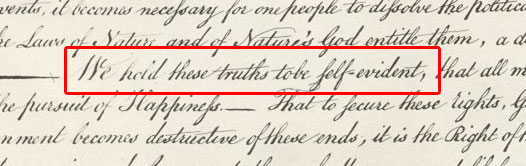 vents, it becomes necessary for one people to dissolve the politica
he Laws of Nature and of Nature's God entitle them, a d
We hold these truths to be self-evident, that all m
he pursuit of Happiness.— That to secure these rights, G
nment becomes destructive of these ends, it is the Right of